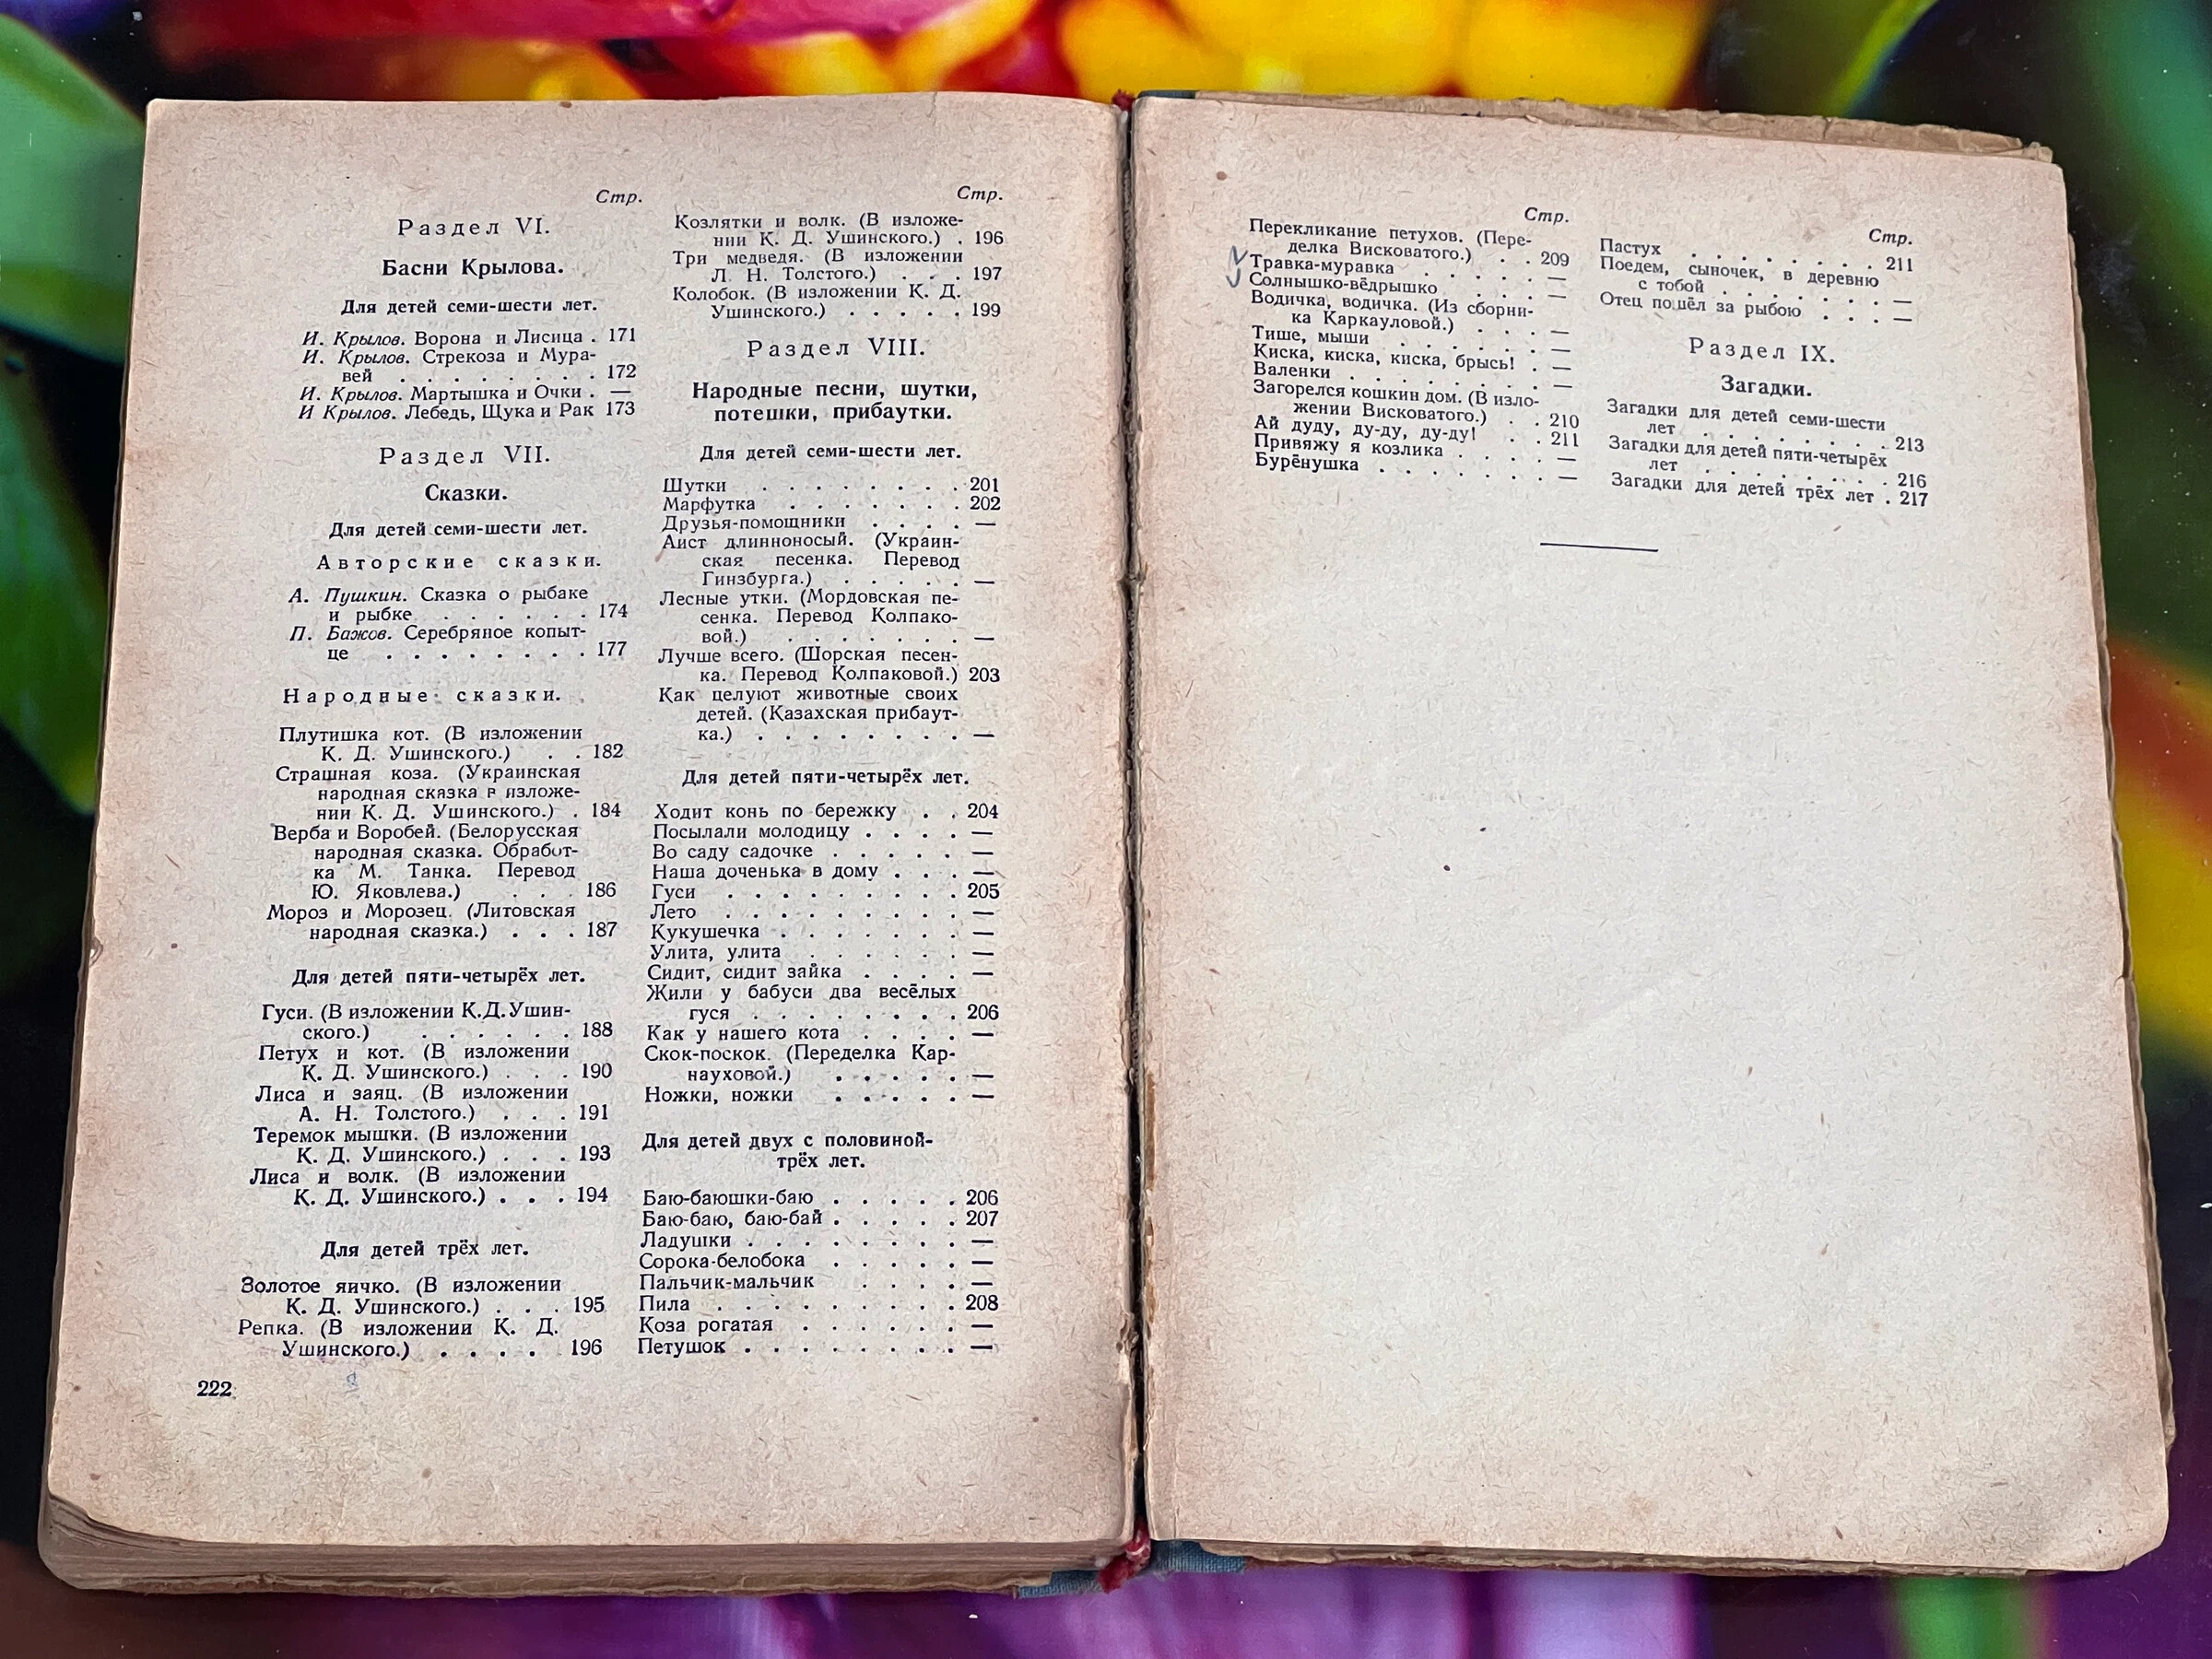 Стр.
Раздел VI.
Басни Крылова.
Для детей семи-шести лет.
И. Крылов. Ворона и Лисица . 171
И. Крылов. Стрекоза и Мура-
вей . . . . . . . . 172
И. Крылов. Мартышка и Очки . —
И Крылов. Лебедь, Щука и Рак 173
Раздел VII.
Сказки.
Для детей семи-шести лет.
Авторские сказки.
А. Пушкин. Сказка о рыбаке
и рыбке . . . . . . 174
П. Бажов. Серебряное копыт-
це . . . . . . . . 177
Народные сказки.
Плутишка кот. (В изложении
К. Д. Ушинского.) . . 182
Страшная коза. (Украинская
народная сказка в изложе-
нии К. Д. Ушинского.) . 184
Верба и Воробей. (Белорусская
народная сказка. Обработ-
ка М. Танка. Перевод
Ю. Яковлева.) . . . 186
Мороз и Морозец. (Литовская
народная сказка.) . . . 187
Для детей пяти-четырёх лет.
Гуси. (В изложении К.Д.Ушин-
ского.) . . . . . . 188
Петух и кот. (В изложении
К. Д. Ушинского.) . . . 190
Лиса и заяц. (В изложении
А. Н. Толстого.) . . . 191
Теремок мышки. (В изложении
К. Д. Ушинского.) . . . 193
Лиса и волк. (В изложении
К. Д. Ушинского.) . . . 194
Для детей трёх лет.
Золотое яичко. (В изложении
К. Д. Ушинского.) . . . 195
Репка. (В изложении К. Д.
Ушинского.) . . . . 196
222
Стр.
Козлятки и волк. (В изложе-
нии К. Д. Ушинского.) . 196
Три медведя. (В изложении
Л. Н. Толстого.) . . . 197
Колобок. (В изложении К. Д.
Ушинского.) . . . . . 199
Раздел VIII.
Народные песни, шутки,
потешки, прибаутки.
Для детей семи-шести лет.
Шутки . . . . . . . . 201
Марфутка . . . . . . . 202
Друзья-помощники . . . . —
Аист длинноносый. (Украин-
ская песенка. Перевод
Гинзбурга.) . . . . . —
Лесные утки. (Мордовская пе-
сенка. Перевод Колпако-
вой.) . . . . . . . —
Лучше всего. (Шорская песен-
ка. Перевод Колпаковой.) 203
Как целуют животные своих
детей. (Казахская прибаут-
ка.) . . . . . . . . —
Для детей пяти-четырёх лет.
Ходит конь по бережку . . 204
Посылали молодицу . . . . —
Во саду садочке . . . . . —
Наша доченька в дому . . . —
Гуси . . . . . . . . . 205
Лето . . . . . . . . . —
Кукушечка . . . . . . . —
Улита, улита . . . . . . —
Сидит, сидит зайка . . . . —
Жили у бабуси два весёлых
гуся . . . . . . . . 206
Как у нашего кота . . . . —
Скок-поскок. (Переделка Кар-
науховой.) . . . . . —
Ножки, ножки . . . . . —
Для детей двух с половиной-
трёх лет.
Баю-баюшки-баю . . . . . 206
Баю-баю, баю-бай . . . . . 207
Ладушки . . . . . . . . —
Сорока-белобока . . . . . —
Пальчик-мальчик . . . . —
Пила . . . . . . . . . 208
Коза рогатая . . . . . . —
Петушок . . . . . . . . —
Стр.
Перекликание петухов. (Пере-
делка Висковатого.) . . 209
Травка-муравка . . . . . —
Солнышко-вёдрышко . . . —
Водичка, водичка. (Из сборни-
ка Каркауловой.) . . . —
Тише, мыши . . . . . . —
Киска, киска, киска, брысь! . —
Валенки . . . . . . . . —
Загорелся кошкин дом. (В изло-
жении Висковатого.) . . 210
Ай дуду, ду-ду, ду-ду! . . 211
Привяжу я козлика . . . . —
Бурёнушка . . . . . . —
Стр.
Пастух . . . . . . . . 211
Поедем, сыночек, в деревню
с тобой . . . . . . . —
Отец пошёл за рыбою . . . —
Раздел IX.
Загадки.
Загадки для детей семи-шести
лет . . . . . . . . 213
Загадки для детей пяти-четырёх
лет . . . . . . . . 216
Загадки для детей трёх лет . 217